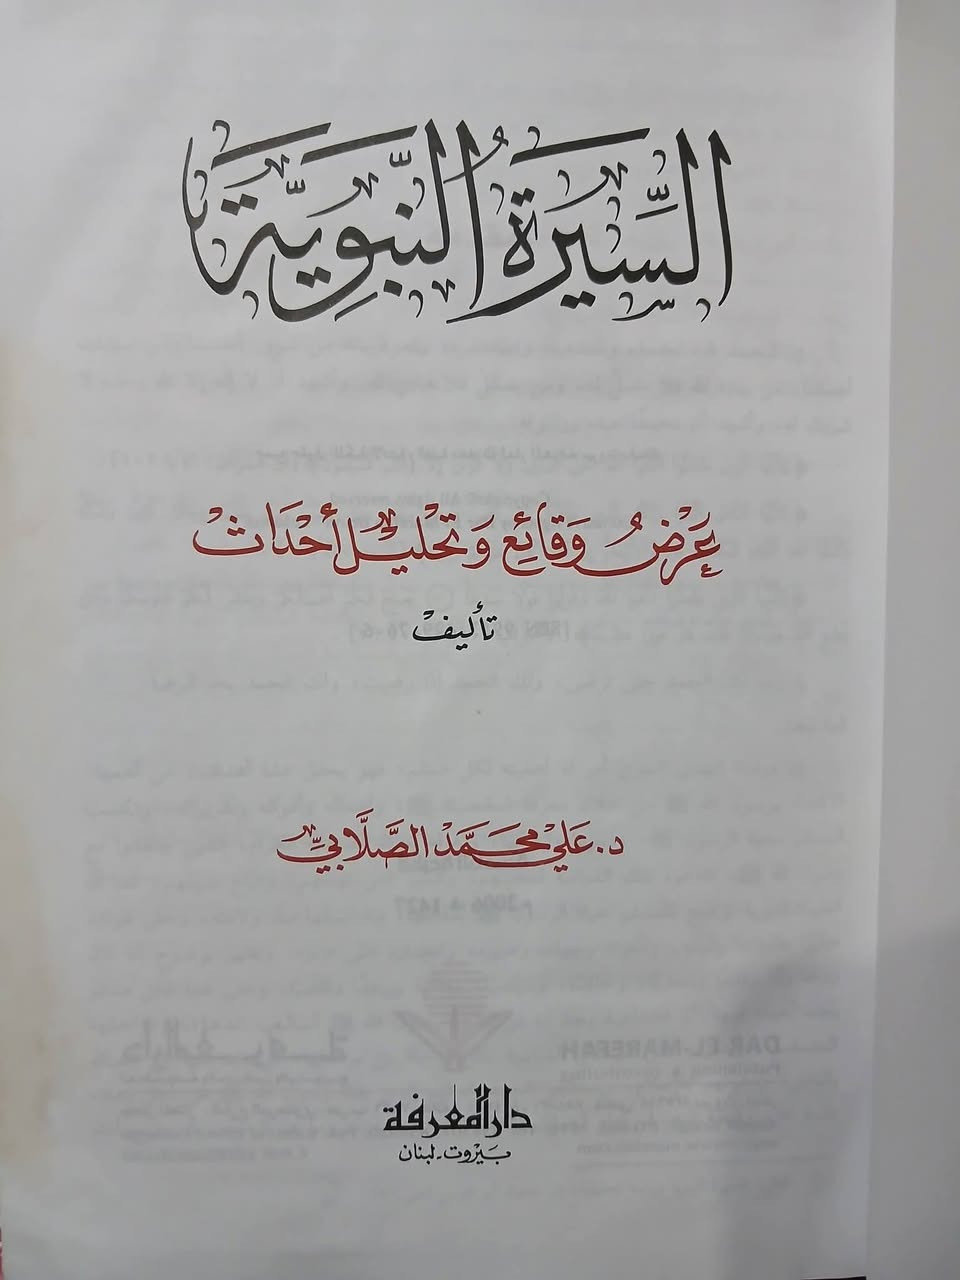 السيرة النبوية
عرض وقائع وتحليل أحداث
تأليف
د. علي محمد الصلابي
دار المعرفة
بيروت - لبنان